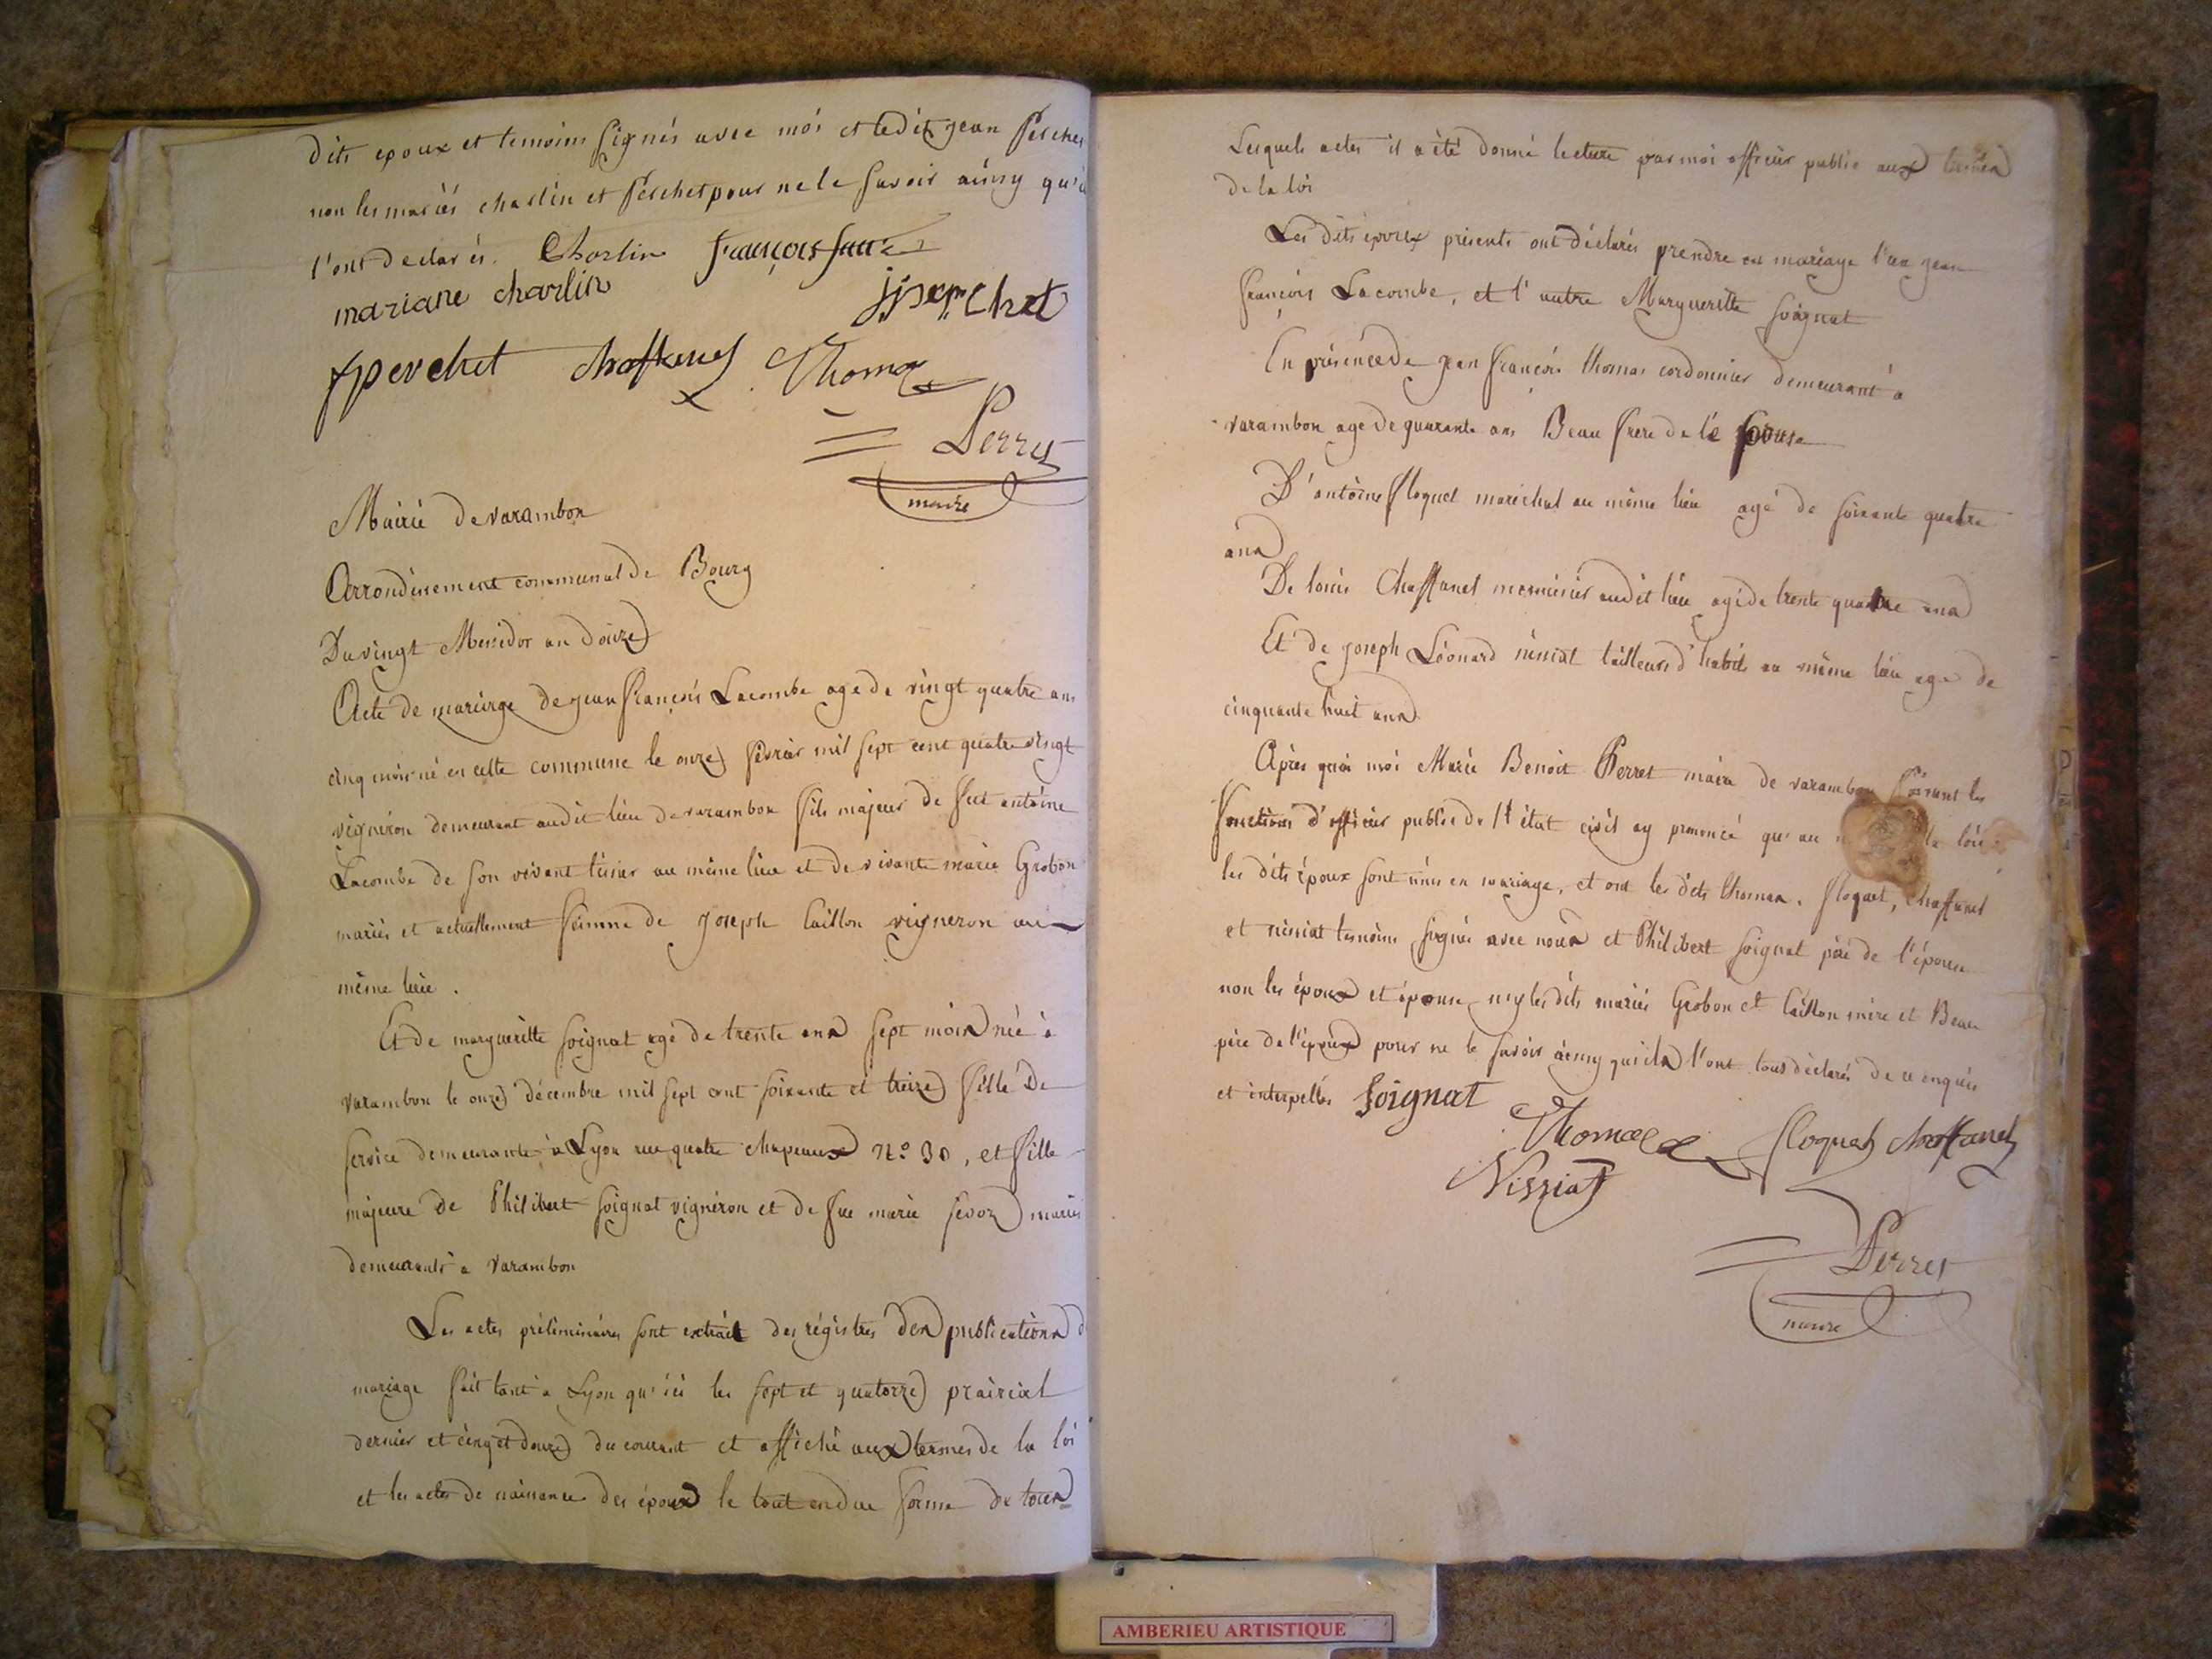 dits epoux et temoins signés avec moi et ledit jean Perchet
non les mariés charlin et Perchet pour ne le savoir ainsy qu'il
l'ont declarés. Charlin françois
mariane charlin
perchet chaffanel Thomas
Perret
maire
Mairie de varambon
Arrondissement communal de Bourg
Du vingt Messidor an douze
Acte de mariage de jean françois Lacombe age de vingt quatre ans
cinq mois né en cette commune le onze fevrier mil sept cent quatre vingt
vigneron demeurant audit lieu de varambon fils majeur de feu antoine
Lacombe de son vivant tisier au même lieu et de vivante marie Grobon
mariés et actuellement femme de joseph Caillon vigneron au
même lieu.
Et de margueritte soignat agé de trente ans sept mois née à
varambon le onze décembre mil sept cent soixante et treize fille de
service demeurante à Lyon rue quatre chapeaux N° 30, et fille
majeure de Philibert soignat vigneron et de fue marie mariés
demeurants a varambon
Les actes préliminaires sont extrait des régistres des publications d
mariage fait tant a Lyon qu'ici les sept et quatorze prairial
dernier et cinq et douze du courant et affiché aux termes de la loi
et les actes de naissance des époux le tout en due forme de tous
Lesquels actes il a été donné lecture par moi officier public aux termes
de la loi
Les dits époux présents ont déclarés prendre en mariage l'un jean
françois Lacombe, et l'autre Margueritte soignat
En présence de jean françois thomas cordonnier demeurant a
varambon age de quarante ans Beau frere de le épouse
D'antoine floquet marechal au même lieu agé de soixante quatre
ans
De louis Chaffanel menuisier audit lieu agé de trente quatre ans
Et de joseph Léonard nisiat tailleurs d'habit au même lieu age de
cinquante huit ans.
Après quoi moi Marie Benoit Perret maire de varambon faisant les
fonctions d'officier public de l'état civil ay prononcé qu'au la loi
les dits époux sont unis en mariage, et ont les dits thomas. floquet, chaffanel
et nisiat temoins signés avec nous et Philibert soignat père de l'épouse
non les époux et épouse ny les dits mariés Grobon et Caillon mère et Beau
père de l'époux pour ne le savoir ainsy qu'ils l'ont tous déclarés de ce enquis
et interpellés Soignat
Thomas floquet chaffanel
Nisziat
Perret
maire
AMBERIEU ARTISTIQUE